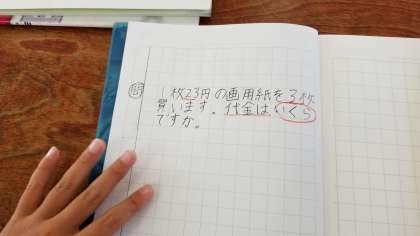 問
1枚23円の画用紙を3枚
買います。代金はいくら
ですか。